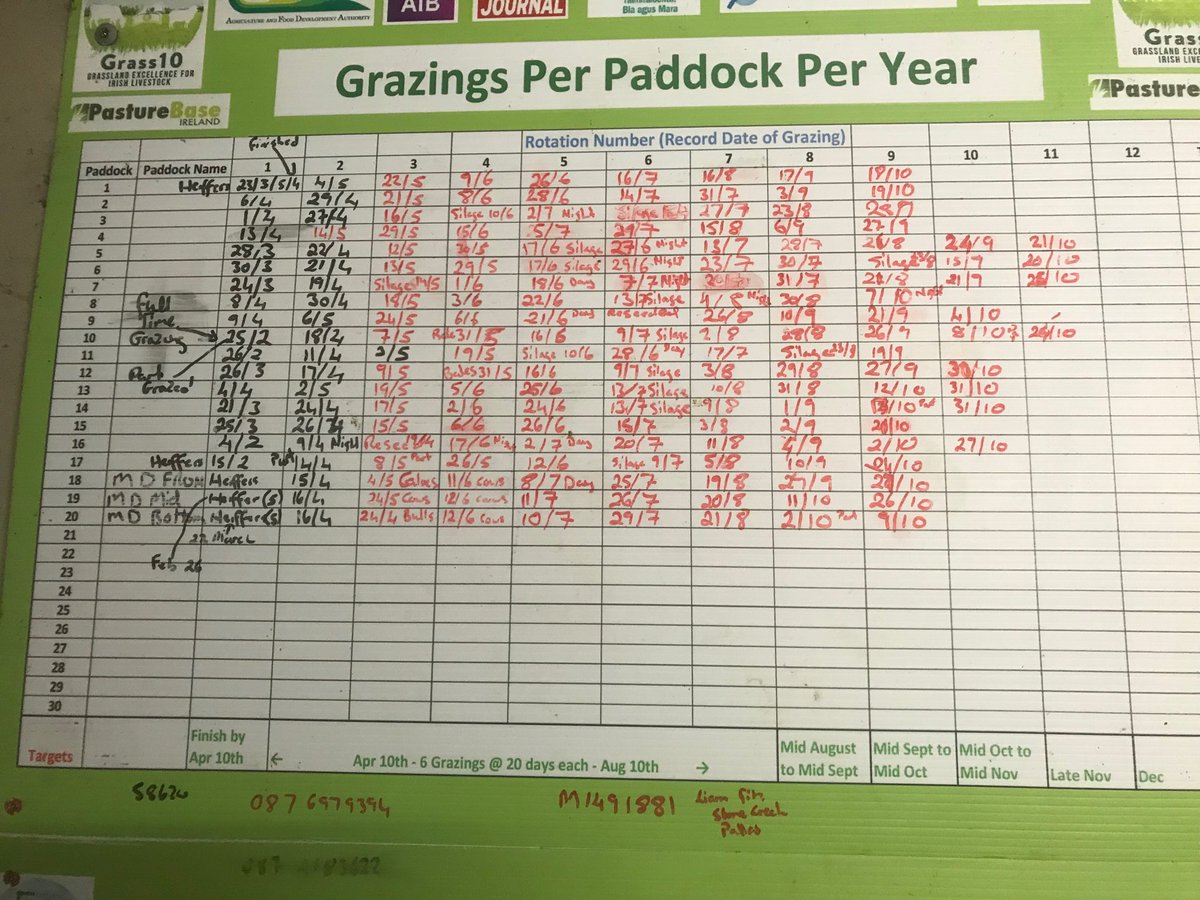 AGRICULTURE AND FOOD DEVELOPMENT AUTHORITY
AIB
JOURNAL
Bia agus Mara
Grass10
GRASSLAND EXCELLENCE FOR
IRISH LIVESTOCK
PastureBase
IRELAND
Grazings Per Paddock Per Year
Grass
GRASSLAND EXCELLE
IRISH LIVE
Pasture
Finished
Rotation Number (Record Date of Grazing)
Paddock Paddock Name 1 2 3 4 5 6 7 8 9 10 11 12
1 Heffers 23/3/5/4 4/5 22/5 9/6 26/6 16/7 16/8 17/9 18/10
2 6/4 29/4 21/5 8/6 28/6 14/7 31/7 3/9 19/10
3 1/4 27/4 16/5 Silage 10/6 2/7 Night Silage 27/7 23/8
4 13/4 14/5 29/5 15/6 5/7 29/7 15/8 6/9 27/9
5 28/3 22/4 12/5 30/5 17/6 Silage 27/6 Night 13/7 28/7 26/8 24/9 21/10
6 30/3 21/4 13/5 29/5 17/6 Silage 29/6 Night 23/7 30/7 Silage 15/9 20/10
7 24/3 19/4 Silage 1/6 18/6 Day 7/7 Night 31/7 21/9
8 Full 8/4 30/4 18/5 3/6 22/6 13/7 Silage 4/8 30/8 7/10
9 Time 9/4 6/5 24/5 21/6 Day Reseeded 26/8 10/9 21/9 4/10
10 Grazing 25/2 18/4 7/5 16/6 9/7 Silage 2/8 28/8 26/9 8/10
11 26/2 11/4 2/5 19/5 Silage 10/6 28/6 Day 17/7 Silage 19/9
12 Part 26/3 17/4 9/5 Bales 31/5 16/6 9/7 Silage 3/8 29/8 27/9 30/10
13 Grazed 4/4 2/5 19/5 5/6 25/6 13/7 Silage 10/8 31/8 12/10 31/10
14 21/3 24/4 17/5 2/6 24/6 13/7 Silage 9/8 1/9 31/10
15 25/3 26/4 15/5 6/6 26/6 15/7 3/8 2/9
16 4/2 9/4 Night 17/6 2/7 Day 20/7 11/8 4/9 2/10 27/10
17 Heffers 15/2 Part 14/4 8/5 Part 26/5 12/6 Silage 9/7 5/8 10/9 24/10
18 M D Heffers 15/4 4/5 11/6 Cows 8/7 Day 25/7 19/8 27/9
19 M D Mid Heffer(s) 16/4 24/5 Cows 12/6 cows 11/7 26/7 20/8 11/10 26/10
20 M D Bottom Heiffer(s) 16/4 24/4 Bulls 12/6 Cows 10/7 29/7 21/8 2/10 9/10
21 22 March
22
23 Feb 26
24
25
26
27
28
29
30
Targets Finish by Apr 10th ← Apr 10th - 6 Grazings @ 20 days each - Aug 10th → Mid August to Mid Sept Mid Sept to Mid Oct Mid Oct to Mid Nov Late Nov Dec
58620
087 6979394
M1491881
Liam
Stone Creek